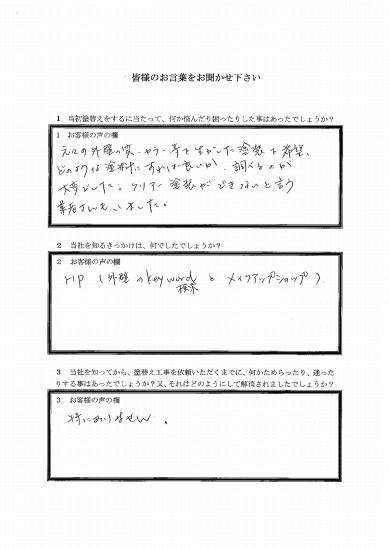 皆様のお言葉をお聞かせ下さい
1 当初塗替えをするに当たって、何か悩んだり困ったりした事はあったでしょうか?
1 お客様の声の欄
元々の外壁の質、カラー等を生かした塗装を希望、
どのような塗料にすれば良いか、調べるのが
大変でした。クリアー塗装ができないと言う
業者さんもいました。
2 当社を知るきっかけは、何でしたでしょうか?
2 お客様の声の欄
HP (外壁のkeyword検索とメイクアップショップ)
3 当社を知ってから、塗替え工事を依頼いただくまでに、何かためらったり、迷った
りする事はあったでしょうか?又、それはどのようにして解消されましたでしょうか?
3 お客様の声の欄
特にありません。